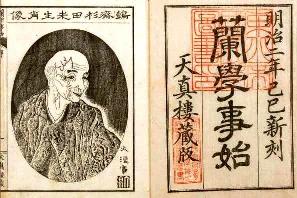 明治二年己巳新刻
蘭學事始
天真樓蔵版
鷧齋杉田先生肖像